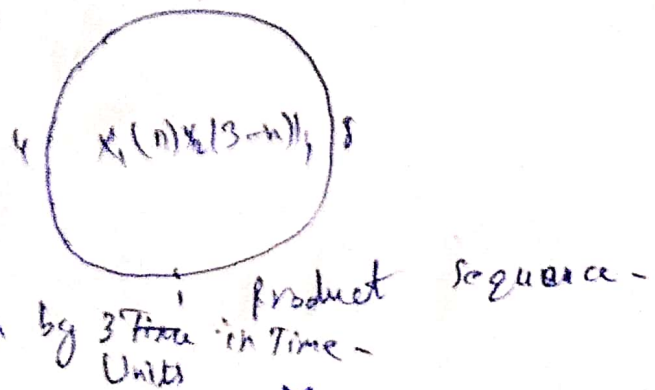 4 x₁(n)x₂(3-n))₄ 8
1
Product Sequence -
by 3 in Time -
Units